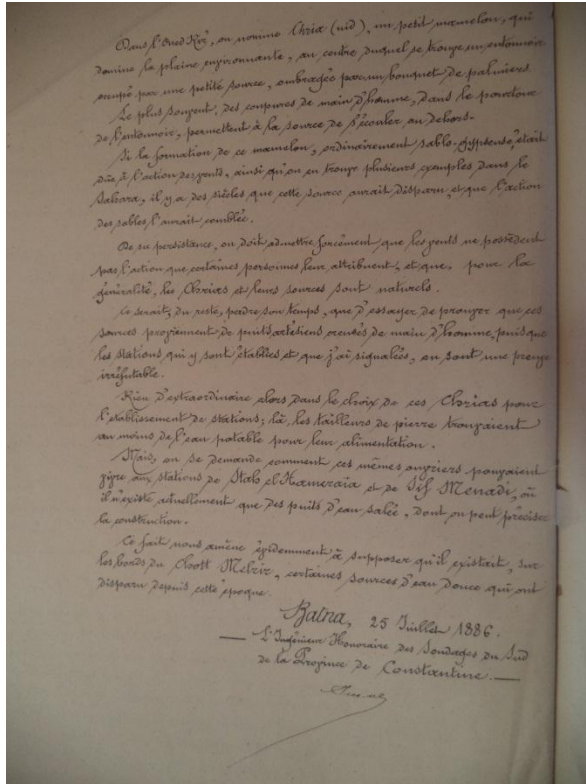 Dans l'Oued Rir', on nomme Chria (nid), un petit mamelon, qui
domine la plaine environnante, au centre duquel se trouve un entonnoir
occupé par une petite source, ombragée par un bouquet de palmiers
Le plus souvent, des coupures de main d'homme, dans le pourtour
de l'entonnoir, permettent à la source de s'écouler au dehors.
Si la formation de ce mamelon, ordinairement sablo-gypseuse, était
due, à l'action des vents, ainsi qu'on en trouve plusieurs exemples dans le
Sahara, il y a des siècles que cette source aurait disparu, et que l'action
des sables l'aurait comblée.
De sa persistance, on doit admettre forcément que les vents ne possèdent
pas l'action que certaines personnes leur attribuent, et que, pour la
généralité, les Chrias et leurs sources sont naturels.
Ce serait, du reste, perdre son temps, que d'essayer de prouver que ces
sources proviennent de puits artésiens creusés de main d'homme, puisque
les stations qui y sont établies et que j'ai signalées, en sont une preuve
irréfutable.
Rien d'extraordinaire alors dans le choix de ces Chrias pour
l'établissement de stations; là, les tailleurs de pierre trouvaient
au moins de l'eau potable pour leur alimentation.
Mais, on se demande comment ces mêmes ouvriers pouvaient
vivre aux stations de Stah el Hameraïa et de Sif Menadi, où
il n'existe actuellement que des puits d'eau salée, dont on peut préciser
la construction.
Ce fait nous amène évidemment à supposer qu'il existait, sur
les bords du Chott Melrir, certaines sources d'eau douce qui ont
disparu depuis cette époque.
Batna, 25 Juillet 1886.
— L'Ingénieur Honoraire des Sondages du Sud
de la Province de Constantine. —